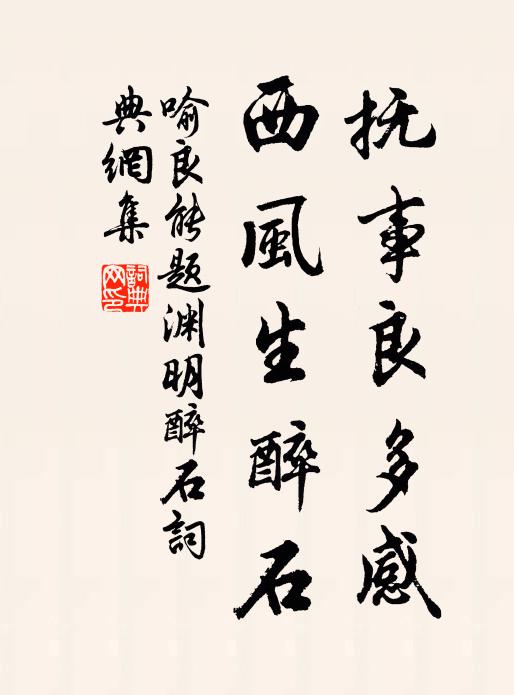 抚事良多感
西風生醉石
喻良能題渊明醉石詞
典網集
詞典
网印